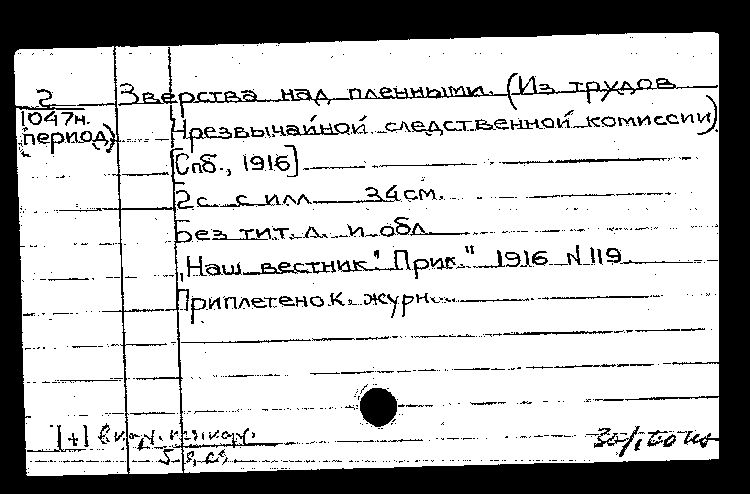 2 Зверства над пленными. (Из трудов
1047н. Чрезвычайной следственной комиссии)
(период) [Спб., 1916]
2с. с илл 34см.
Без тит. л. и обл.
"Наш вестник" Прил." 1916 N 119.
Приплетено к. журн...
[+]